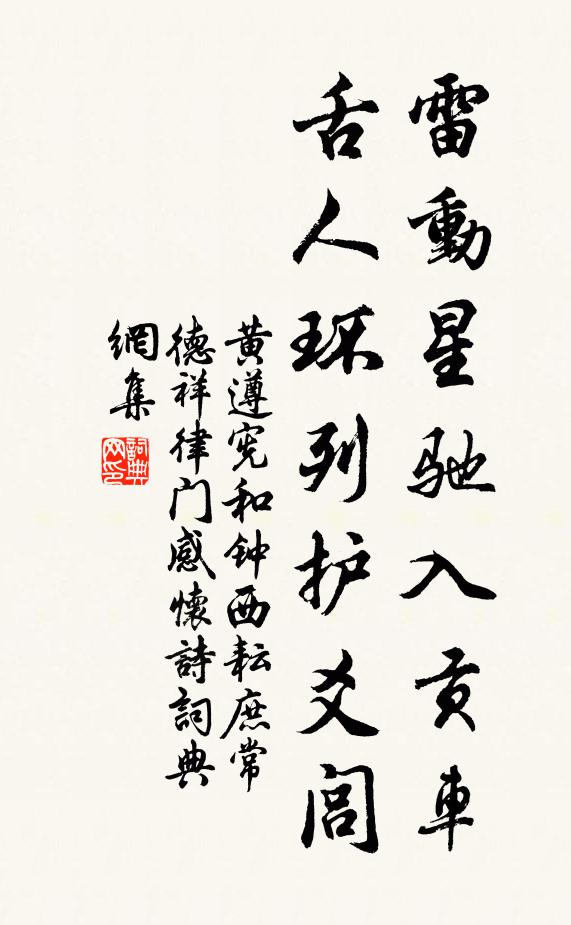 雷動星驰入贡車
舌人环列护爻闾
黄遵宪和钟西耘庶常
德祥律门感懷詩詞典
網集
詞典
网印